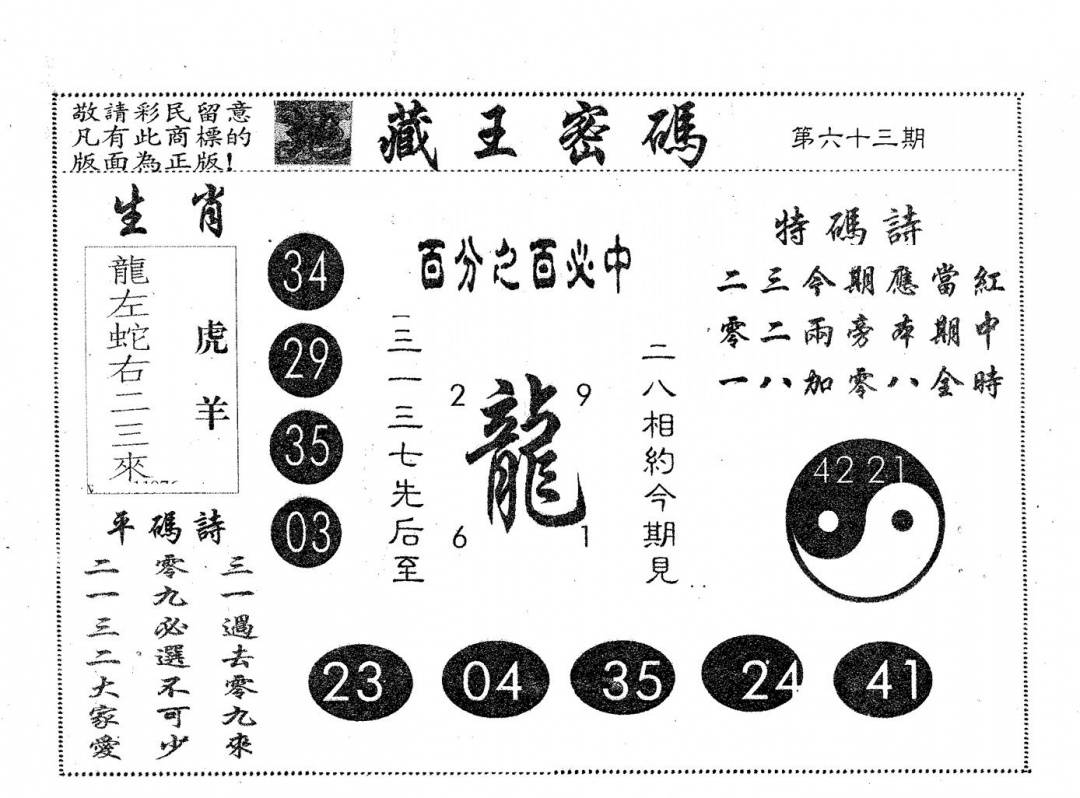 敬請彩民留意
凡有此商標的
版面為正版!
地藏王密碼
第六十三期
生肖
虎羊
龍左蛇右二三來
34
29
35
03
百分之百必中
二八相約今期見
2 9
龍
6 1
三一三七先后至
特碼詩
二三今期應當紅
零二兩旁本期中
一八加零八金時
42 21
平碼詩
三一過去零九來
零九必選不可少
二一三二大家愛
23 04 35 24 41